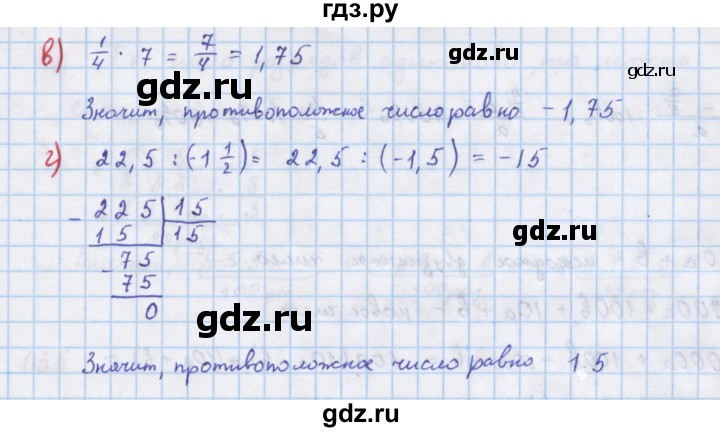 гдз.ру
в) 1/4 · 7 = 7/4 = 1,75
gdz.ru gdz.ru
Значит, противоположное число равно -1,75
gdz.ru gdz.ru
г) 22,5 : (-1 1/2) = 22,5 : (-1,5) = -15
- 225 | 15
15 | 15
- 75
gdz.ru gdz.ru
75
0
gdz.ru gdz.ru
Значит, противоположное число равно 15
gdz.ru gdz.ru
gdz.ru